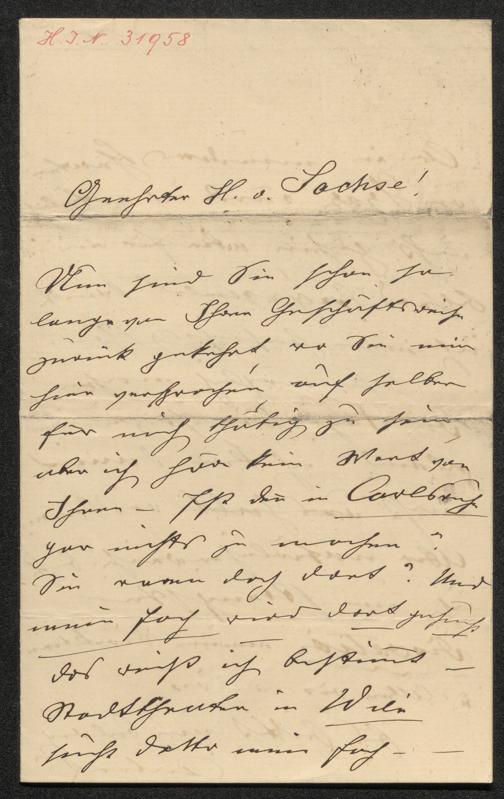 H.I.N. 31958
Geehrter H. v. Sachse!
Nun sind Sie schon so
lange von Ihrer Geschäftsreise
zurück gekehrt, wo Sie mir
hier versprochen, auf selber
für mich thätig zu sein
aber ich höre kein Wort von
Ihnen – Ist den in Carlsruhe
gar nichts zu machen?
Sie waren doch dort? Und
mein Fach wird dort gesucht
das weiß ich bestimt –
Stadttheater in Wien
sucht detto mein Fach – –